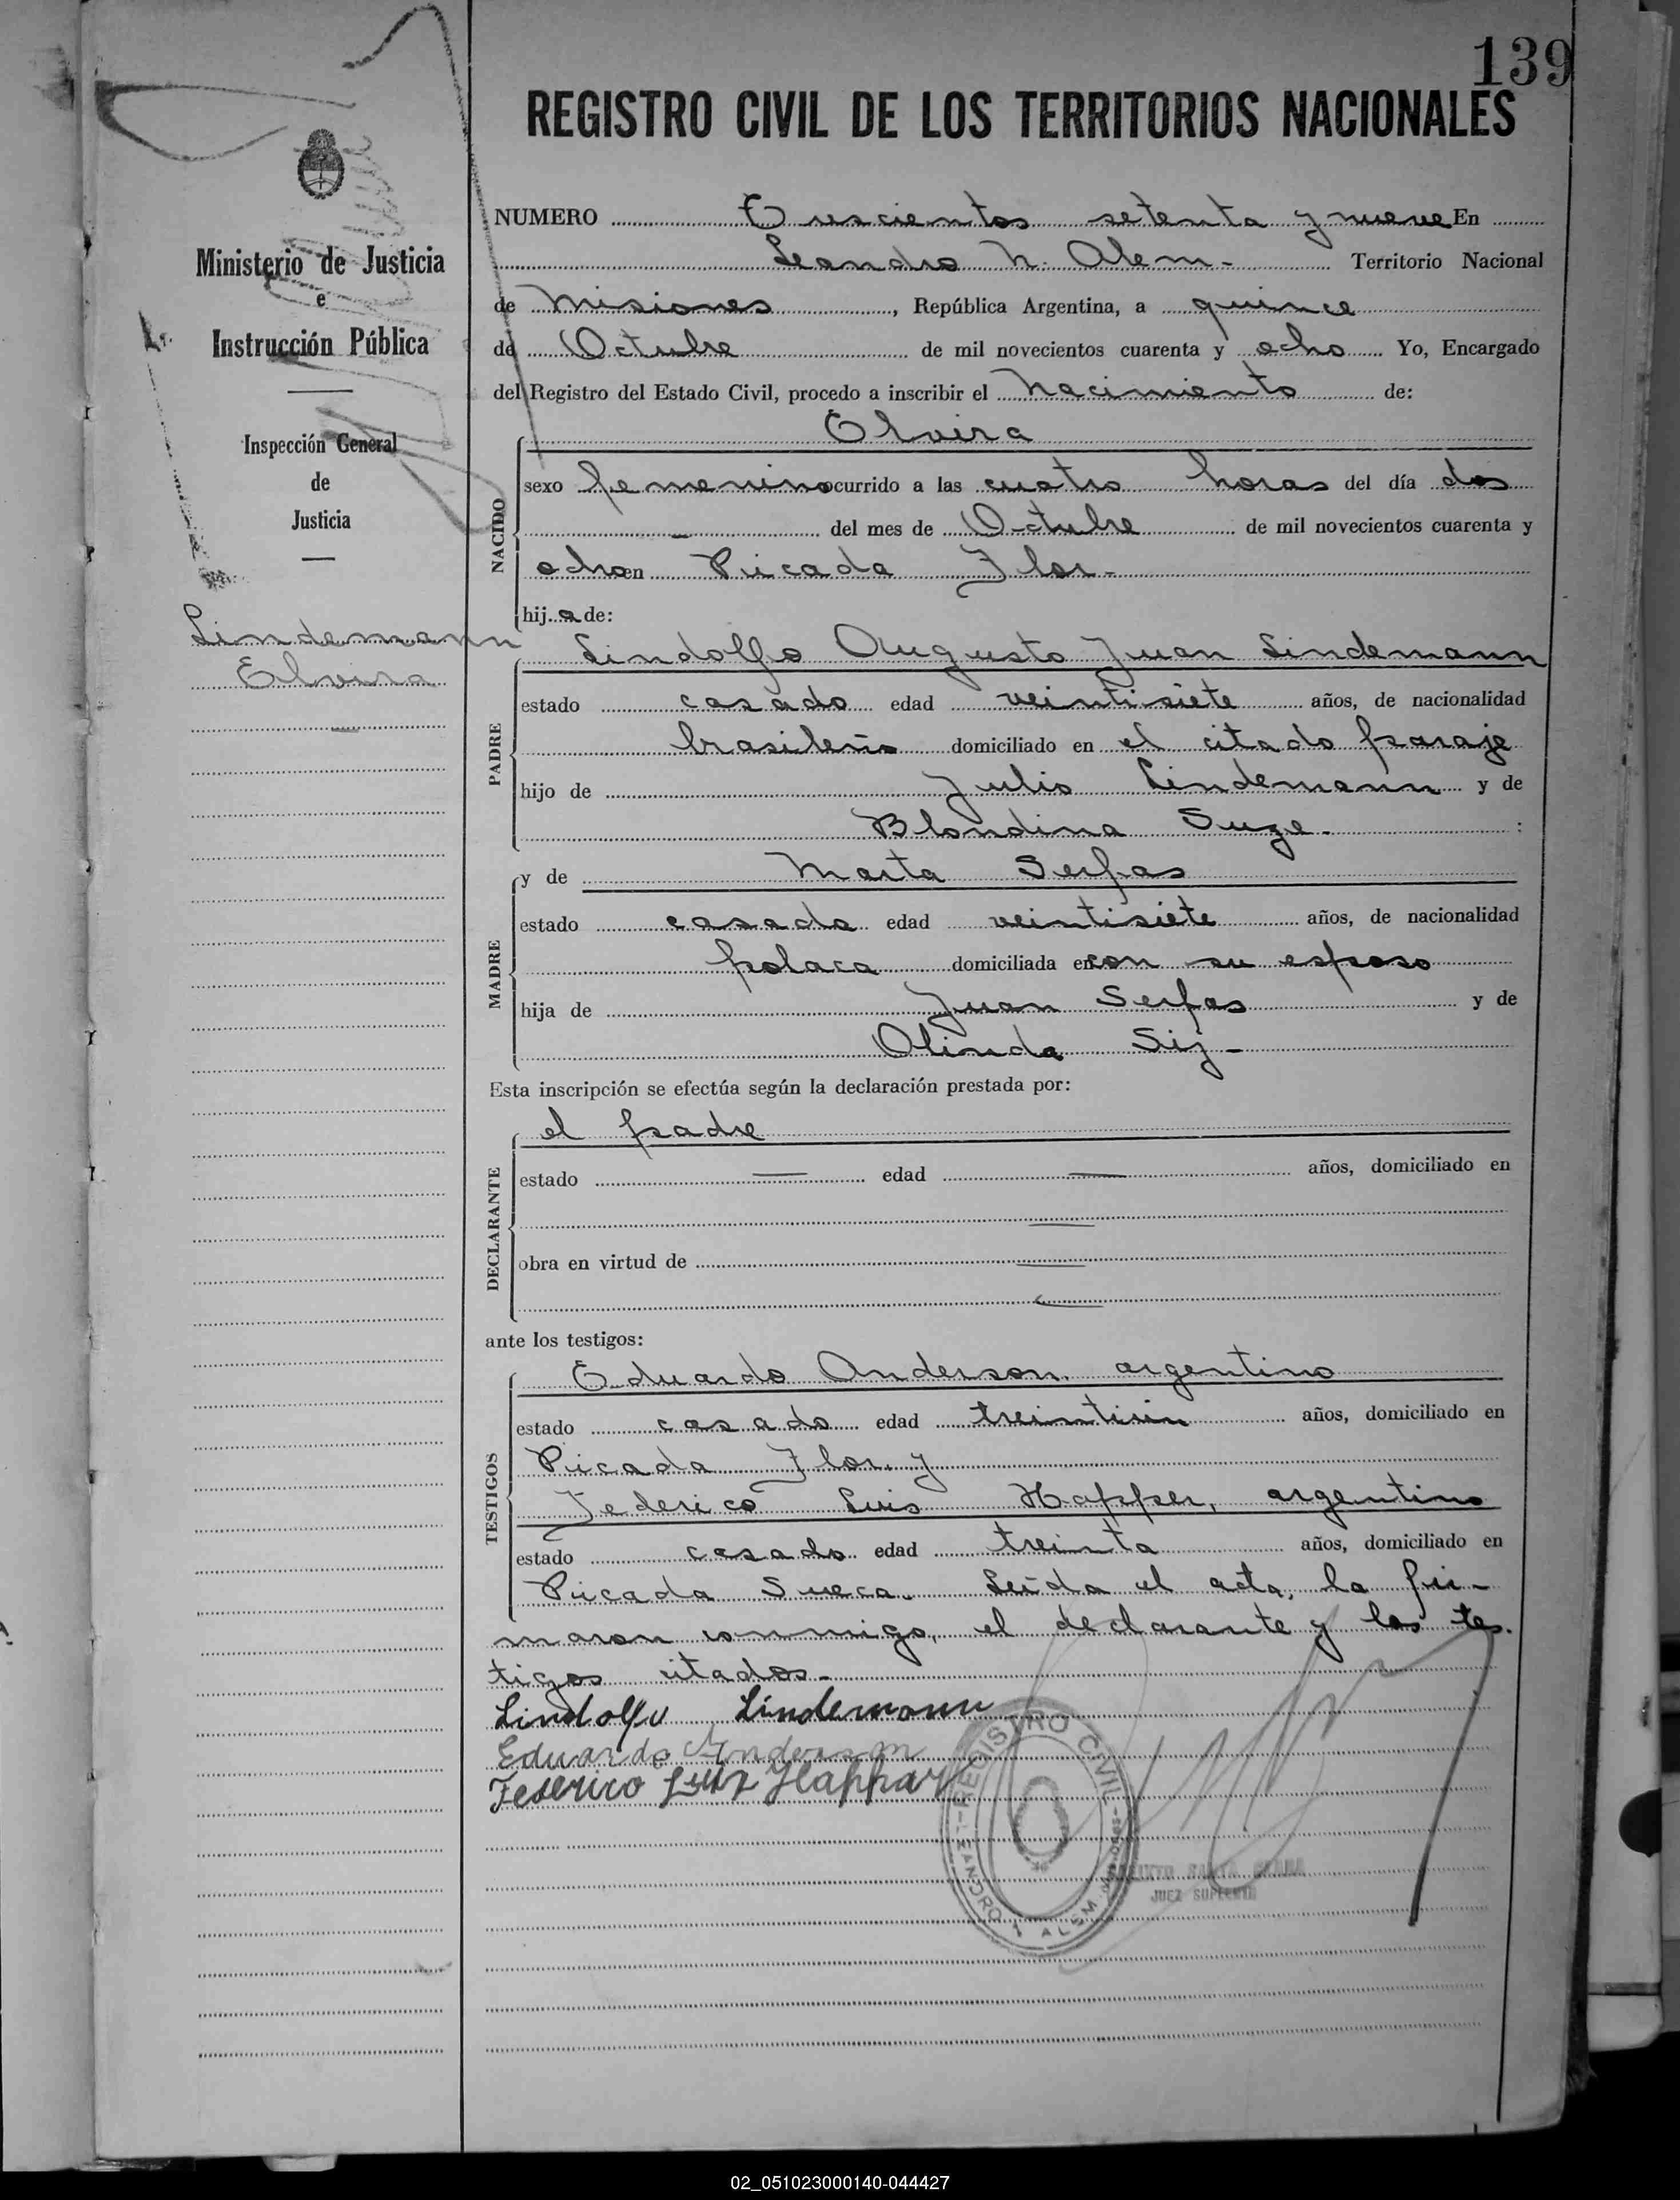 139
REGISTRO CIVIL DE LOS TERRITORIOS NACIONALES
Ministerio de Justicia
e
Instrucción Pública
Inspección General
de
Justicia
Lindemann
Elvira
NUMERO Trescientos setenta y nueve En
Leandro N. Alem.- Territorio Nacional
de Misiones, República Argentina, a quince
de Octubre de mil novecientos cuarenta y ocho Yo, Encargado
del Registro del Estado Civil, procedo a inscribir el Nacimiento de:
NACIDO
Elvira
sexo femenino ocurrido a las cuatro horas del día dos
- del mes de Octubre de mil novecientos cuarenta y
ocho en Picada Flor.-
hij a de:
PADRE
Lindolfo Augusto Juan Lindemann
estado casado edad veintisiete años, de nacionalidad
brasileño domiciliado en el citado paraje
hijo de Julio Lindemann y de
Blondina Suze.
MADRE
y de Marta Serfas
estado casada edad veintisiete años, de nacionalidad
polaca domiciliada en con su esposo
hija de Juan Serfas y de
Olinda Sij-
Esta inscripción se efectúa según la declaración prestada por:
DECLARANTE
el padre
estado edad años, domiciliado en
obra en virtud de
ante los testigos:
TESTIGOS
Eduardo Anderson, argentino
estado casado edad años, domiciliado en
Picada Flor, y
Federico Luis Happer, argentino
estado casado edad treinta años, domiciliado en
Picada Sueca. Leída el acta, la fir-
maron conmigo, el declarante y los tes.
tigos citados.-
Lindolfo Lindemann
Eduardo Anderson
Federico Luiz Happar
REGISTRO CIVIL
LEANDRO N. ALEM
SANTA
JUEZ SUPLENTE
02_051023000140-044427